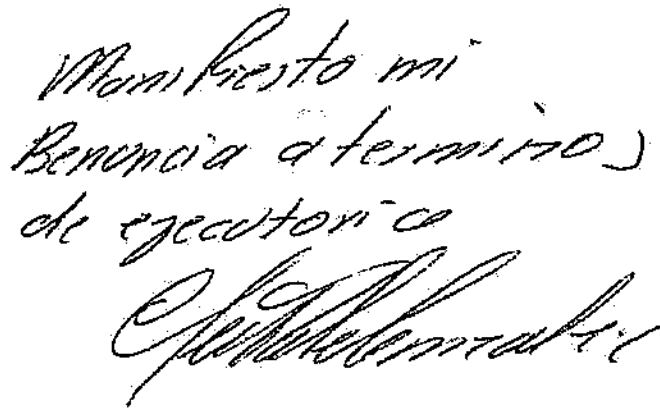 Manifiesto mi
Renuncia a terminos
de ejecutoria